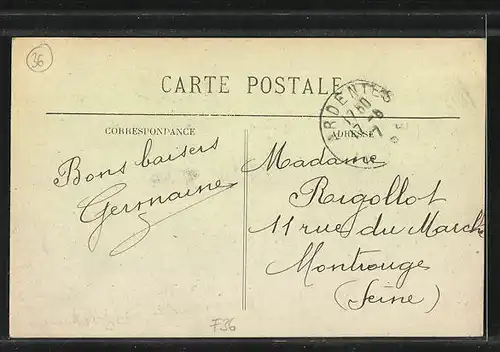 36
CARTE POSTALE
ARDENTES
17 50
CORRESPONDANCE
ADRESSE
Bons baisers
Germaine
Madame
Rigollot
11 rue du Marché
Montrouge
(Seine)
F36